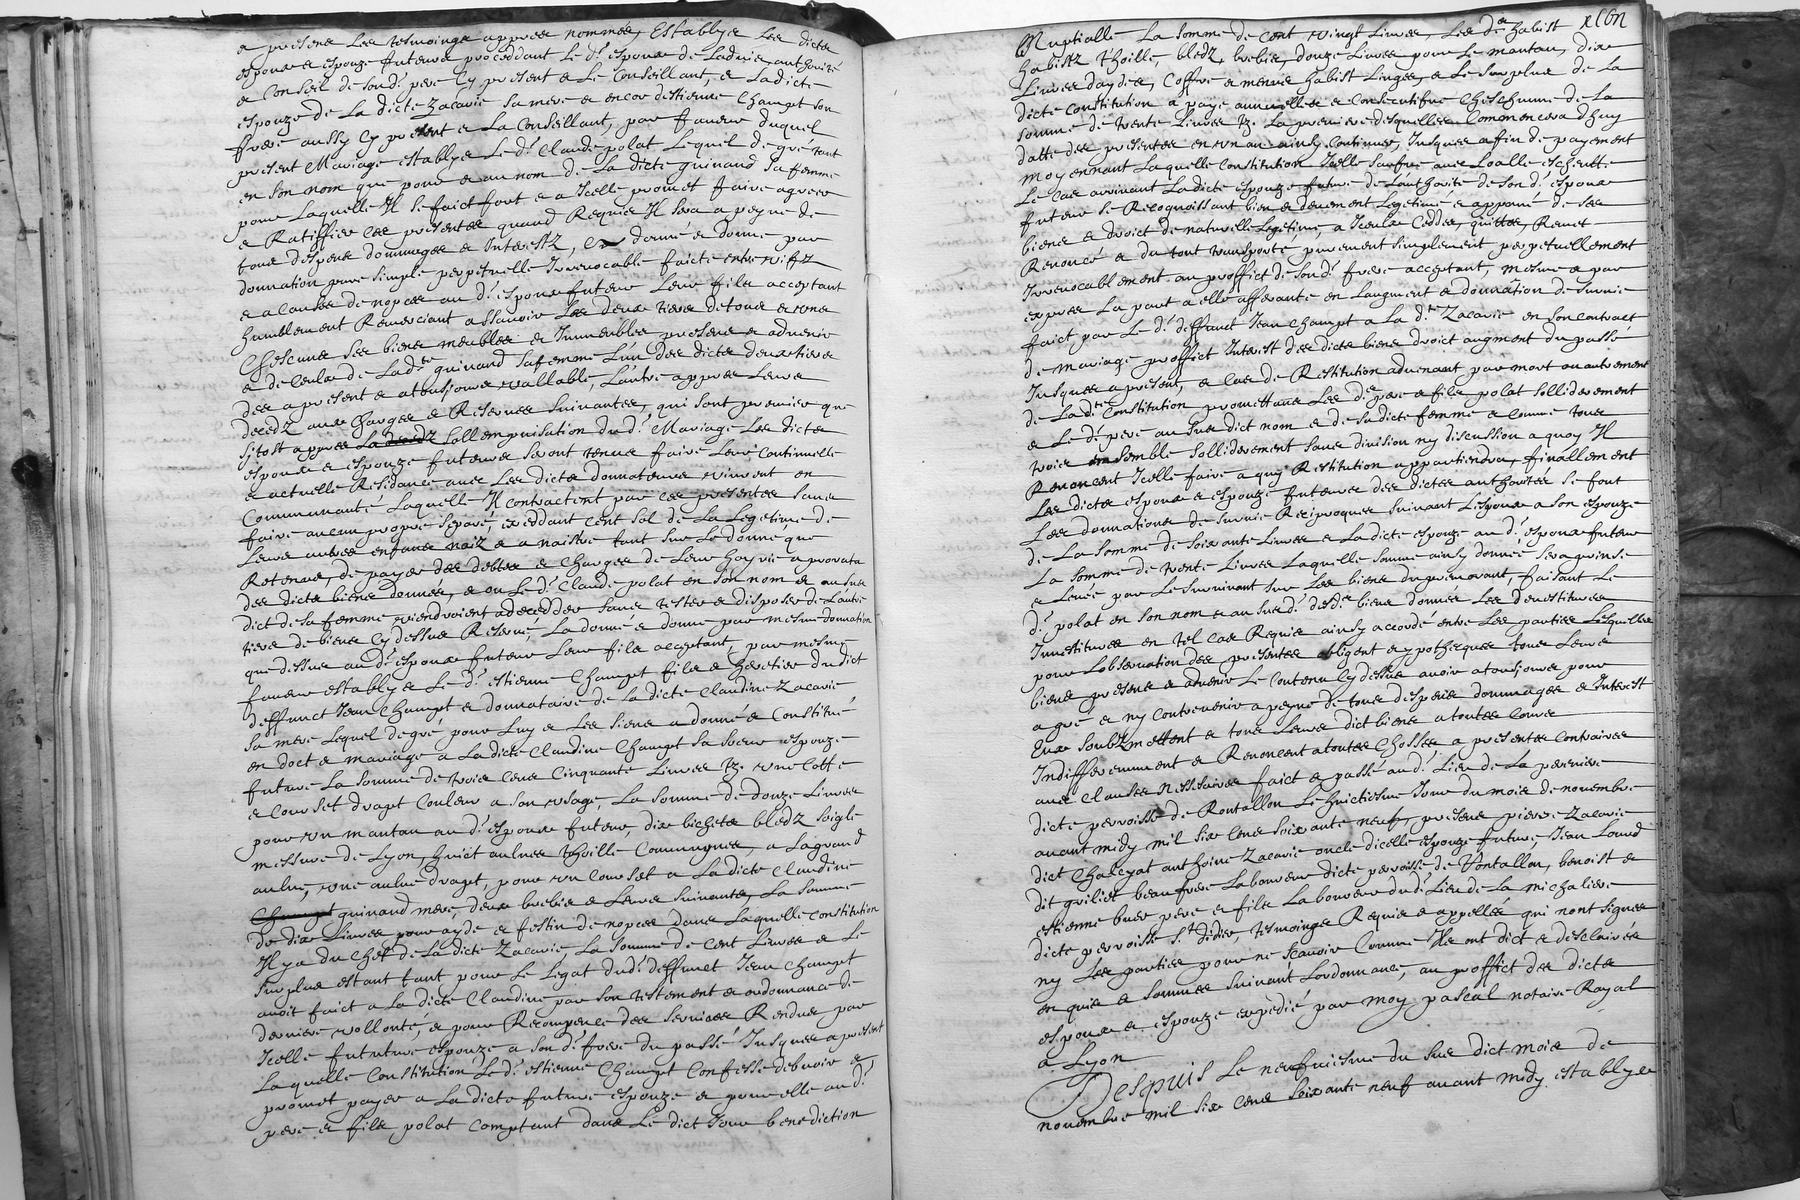 a presens Les tesmoings appres nommés, Establyes Les dictes
espoux et espouze futeurs proceddant Le d.t espoux de Ladvis, authorité
et Conseil de son d. pere Cy present et Le Conseillant, et La dicte
espouze de La dicte Zacarie sa mere et encor destienne Champt son
frere aussy Cy present et La Conseillant, par faveur duquel
present Mariage establye Le d.t Claude polat Lequel de gre tant
en son nom que pour et au nom de La dicte guinand sa femme
pour Laquelle Il se faict fort et a Icelle promet faire agreer
et Ratiffier ces presentes quand Requis Il sera a peyne de
tous despens dommages et Interestz, donné et donne par
donnation pure simple perpetuelle Irrevocable faicte entre viffz
et a cause de nopces au d.t espoux futeur Leur fils acceptant
humblement Remerciant assavoir Les deux tiers de tous et uns
Chescuns ses biens meubles et Immeubles presens et advenir
et de Ceulx de La d.te guinand sa femme L'un des dictes deux tiers
des a present et atousjours vallable, L'autre appres Leurs
decedz aux charges et Reserves suivantes, qui sont premier que
sitost appres La decedz sollempnisation du d.t Mariage Les dictes
espoux et espouze futeurs seront tenus faire Leur Continuelle
et actuelle Residance avec Les dictes donnateurs vivront en
Communauté Laquelle Il Contractent par ces presentes sans
faire aucun propre separé, exeddant Cent sol de La Legetime de
Leurs autres enfans naiz et a naistre tant sur Le donne que
Retenus, de payer des debtes et Charges de Leur hoyrie a prorata
des dictes biens donnés, et ou Le d.t Claude polat en son nom et au sus
dict de sa femme viendroient a decedder sans tester et disposer de L'autre
tiers de biens Cy dessus Reservé, La donné et donne par mesme donnation
que dessus au d.t espoux futeur Leur fils acceptant, par mesme
faveur establye Le d.t estienne Champt fils et heretier du dict
deffunct Jean Champt et donnataire de La dicte Claudine Zacarie
sa mere Lequel de gré pour Luy et Les siens a donné et Constitué
en doct et mariage a La dicte Claudine Champt sa sœur espouze
futeure La somme de trois cens Cinquante Livres tz. une Cotte
et Corset drapt Couleur a son usage, La somme de douze Livres
pour un mantau au d.t espoux futeur, dix bichets bledz soigle
messure de Lyon, huict aulnes thoille Communnes, a La grand
aulne, une aulne drapt, pour un Corset a La dicte Claudine
Champt guinand mere, deux brebis et Leurs suivantes, La somme
de dix Livres pour ayde et festin de nopces dans Laquelle constitution
Il y a du Chef de La dicte Zacarie La somme de Cent Livres et Le
surplus estant tant pour Le Legat du d.t deffunct Jean Champt
avoit faict a La dicte Claudine par son testement et ordonnance de
derniere vollonté, et pour Recompence des services Rendus par
Icelle futeure espouze a son d.t frere du passé Jusques a present
Laquelle Constitution Le d.t estienne Champt Confesse debvoir et
promet payer a La dicte future espouze et pour elle au d.t
pere et fils polat Comptant dans Le dict Jour benediction
Nuptialle La somme de Cent vingt Livres, Les d.es habist
habistz thoille, bledz, brebis, douze Livres pour Le mantau, dix
Livres daydes, Coffre et menus habist Linges, et Le surplus de La
dicte Constitution a paye annuelles et Consecutifve Cheschune de La
somme de trente Livres tz. La premiere desquelles Commencera d huy
datte des presentes en un an ainsy Continuer Jusques affin de payement
moyennant Laquelle Constitution Icelle sauf avec Loalle escheutte
Le Cas arrivant La dicte espouze future de L'authorite de son d.t espoux
futeur se Recognoissant bien et deuement Legetime et apporné de ses
biens et droict de naturelle Legetime, a Iceulx Ceddes, quittes, Remet
Renoncé et du tout transporte purement simplement perpetuellement
Irrevocablement au proffict de son d.t frere acceptant, mesme et par
expres La part a elle afferante en Laugment et donnation de survie
faict par Le d.t deffunct Jean Champt a La d.te Zacarie en son Contract
de mariage proffict Interest des dictes biens droict augment du passé
Jusques a present, et Cas de Restitution advenant par mort ou autrement
de La d.te Constitution promettans Les d.es pere et fils polat sollidérement
et Le d.t pere au sus dict nom et de sa dicte femme et Comme tous
trois ensemble sollidérement sans division ny discussion a quoy Il
Renoncent Icelle faire a quy Restitution appartiendra, finallement
Les dictes espoux et espouze futeurs des dictes authorités se font
Les donnations de survie Reciproques suivant Lespoux a son espouze
de La somme de soixante Livres et La dicte espouze au d.t espoux futeur
La somme de trente Livres Laquelle somme ainsy donnée sera prinse
et Levée par Le survivant sur Les biens du premorant, faisant Le
d.t polat en son nom et au sus d.t des d.es biens donnés Les devestitures
Investitures en tel cas Requis ainsy accordé entre Les parties Lesquelles
pour Lobservation des presentes obligent et ypothequés tous Leurs
biens presens et advenir Le Contenu Cy dessus avoir atousjours pour
agré et ny Contrevenir a peyne de tous despens dommages et Interest
Eux soubzmettent et tous Leurs dict biens a toutes Cours
Indifferemment et Renoncent a toutes Chosses a presentes Contraires
avec Clauses nessesaires faict et passé au d.t Lieu de La perriere
dicte perroisse de Rontallon Le huictiesme Jour du mois de novembre
avant midy mil six cens soixante neuf, presens pierre Zacarie
dict Chaleyat anthoine Zacarie oncle dicelle espouze future, Jean Loud
dit griliet beaufrere Laboureur dicte perroisse de Rontallon, benoist et
estienne buer pere et fils Laboureur du d.t Lieu de La michaliere
dicte perroisse S.t didier, tesmoings Requis et appellés qui nont signes
ny Les parties pour ne scavoir Comme Ils ont dict et desclairés
enquis et sommes suivant Lordonnance, au proffict des dictes
espoux et espouze expedié par moy pascal notaire Royal
a Lyon
Despuis Le neufviesme du sus dict mois de
novembre mil six cens soixante neuf avant midy establyes